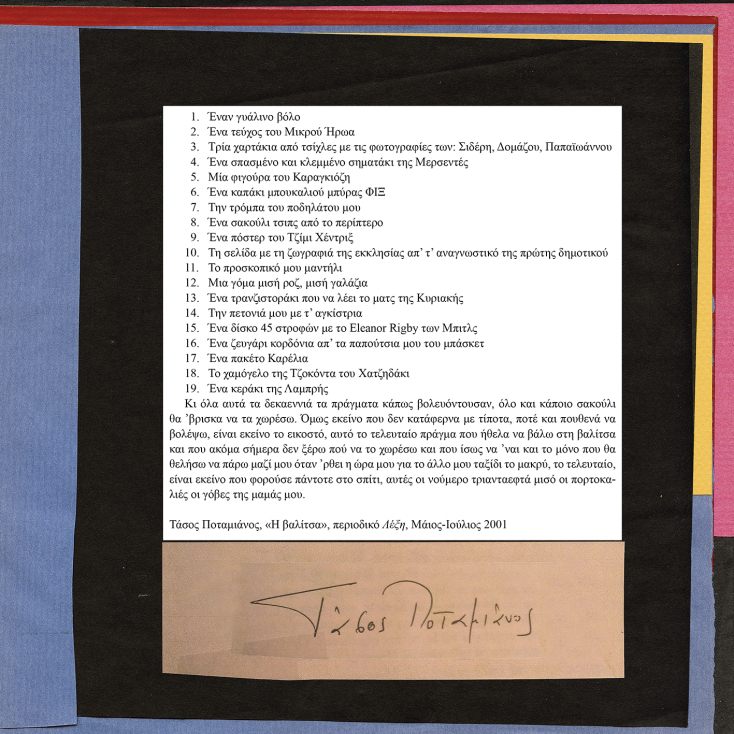 1. Έναν γυάλινο βόλο
2. Ένα τεύχος του Μικρού Ήρωα
3. Τρία χαρτάκια από τσίχλες με τις φωτογραφίες των: Σιδέρη, Δομάζου, Παπαϊωάννου
4. Ένα σπασμένο και κλεμμένο σηματάκι της Μερσεντές
5. Μία φιγούρα του Καραγκιόζη
6. Ένα καπάκι μπουκαλιού μπύρας ΦΙΞ
7. Την τρόμπα του ποδηλάτου μου
8. Ένα σακούλι τσιπς από το περίπτερο
9. Ένα πόστερ του Τζίμι Χέντριξ
10. Τη σελίδα με τη ζωγραφιά της εκκλησίας απ’ τ’ αναγνωστικό της πρώτης δημοτικού
11. Το προσκοπικό μου μαντήλι
12. Μια γόμα μισή ροζ, μισή γαλάζια
13. Ένα τρανζιστοράκι που να λέει το ματς της Κυριακής
14. Την πετονιά μου με τ’ αγκίστρια
15. Ένα δίσκο 45 στροφών με το Eleanor Rigby των Μπιτλς
16. Ένα ζευγάρι κορδόνια απ’ τα παπούτσια μου του μπάσκετ
17. Ένα πακέτο Καρέλια
18. Το χαμόγελο της Τζοκόντα του Χατζηδάκι
19. Ένα κεράκι της Λαμπρής
Κι όλα αυτά τα δεκαεννιά τα πράγματα κάπως βολευόντουσαν, όλο και κάποιο σακούλι
θα ’βρισκα να τα χωρέσω. Όμως εκείνο που δεν κατάφερνα με τίποτα, ποτέ και πουθενά να
βολέψω, είναι εκείνο το εικοστό, αυτό το τελευταίο πράγμα που ήθελα να βάλω στη βαλίτσα
και που ακόμα σήμερα δεν ξέρω πού να το χωρέσω και που ίσως να ’ναι και το μόνο που θα
θελήσω να πάρω μαζί μου όταν ’ρθει η ώρα μου για το άλλο μου ταξίδι το μακρύ, το τελευταίο,
είναι εκείνο που φορούσε πάντοτε στο σπίτι, αυτές οι νούμερο τριανταεφτά μισό οι πορτοκα-
λιές οι γόβες της μαμάς μου.
Τάσος Ποταμιάνος, «Η βαλίτσα», περιοδικό Λέξη, Μάιος-Ιούλιος 2001
Τάσος Ποταμιάνος